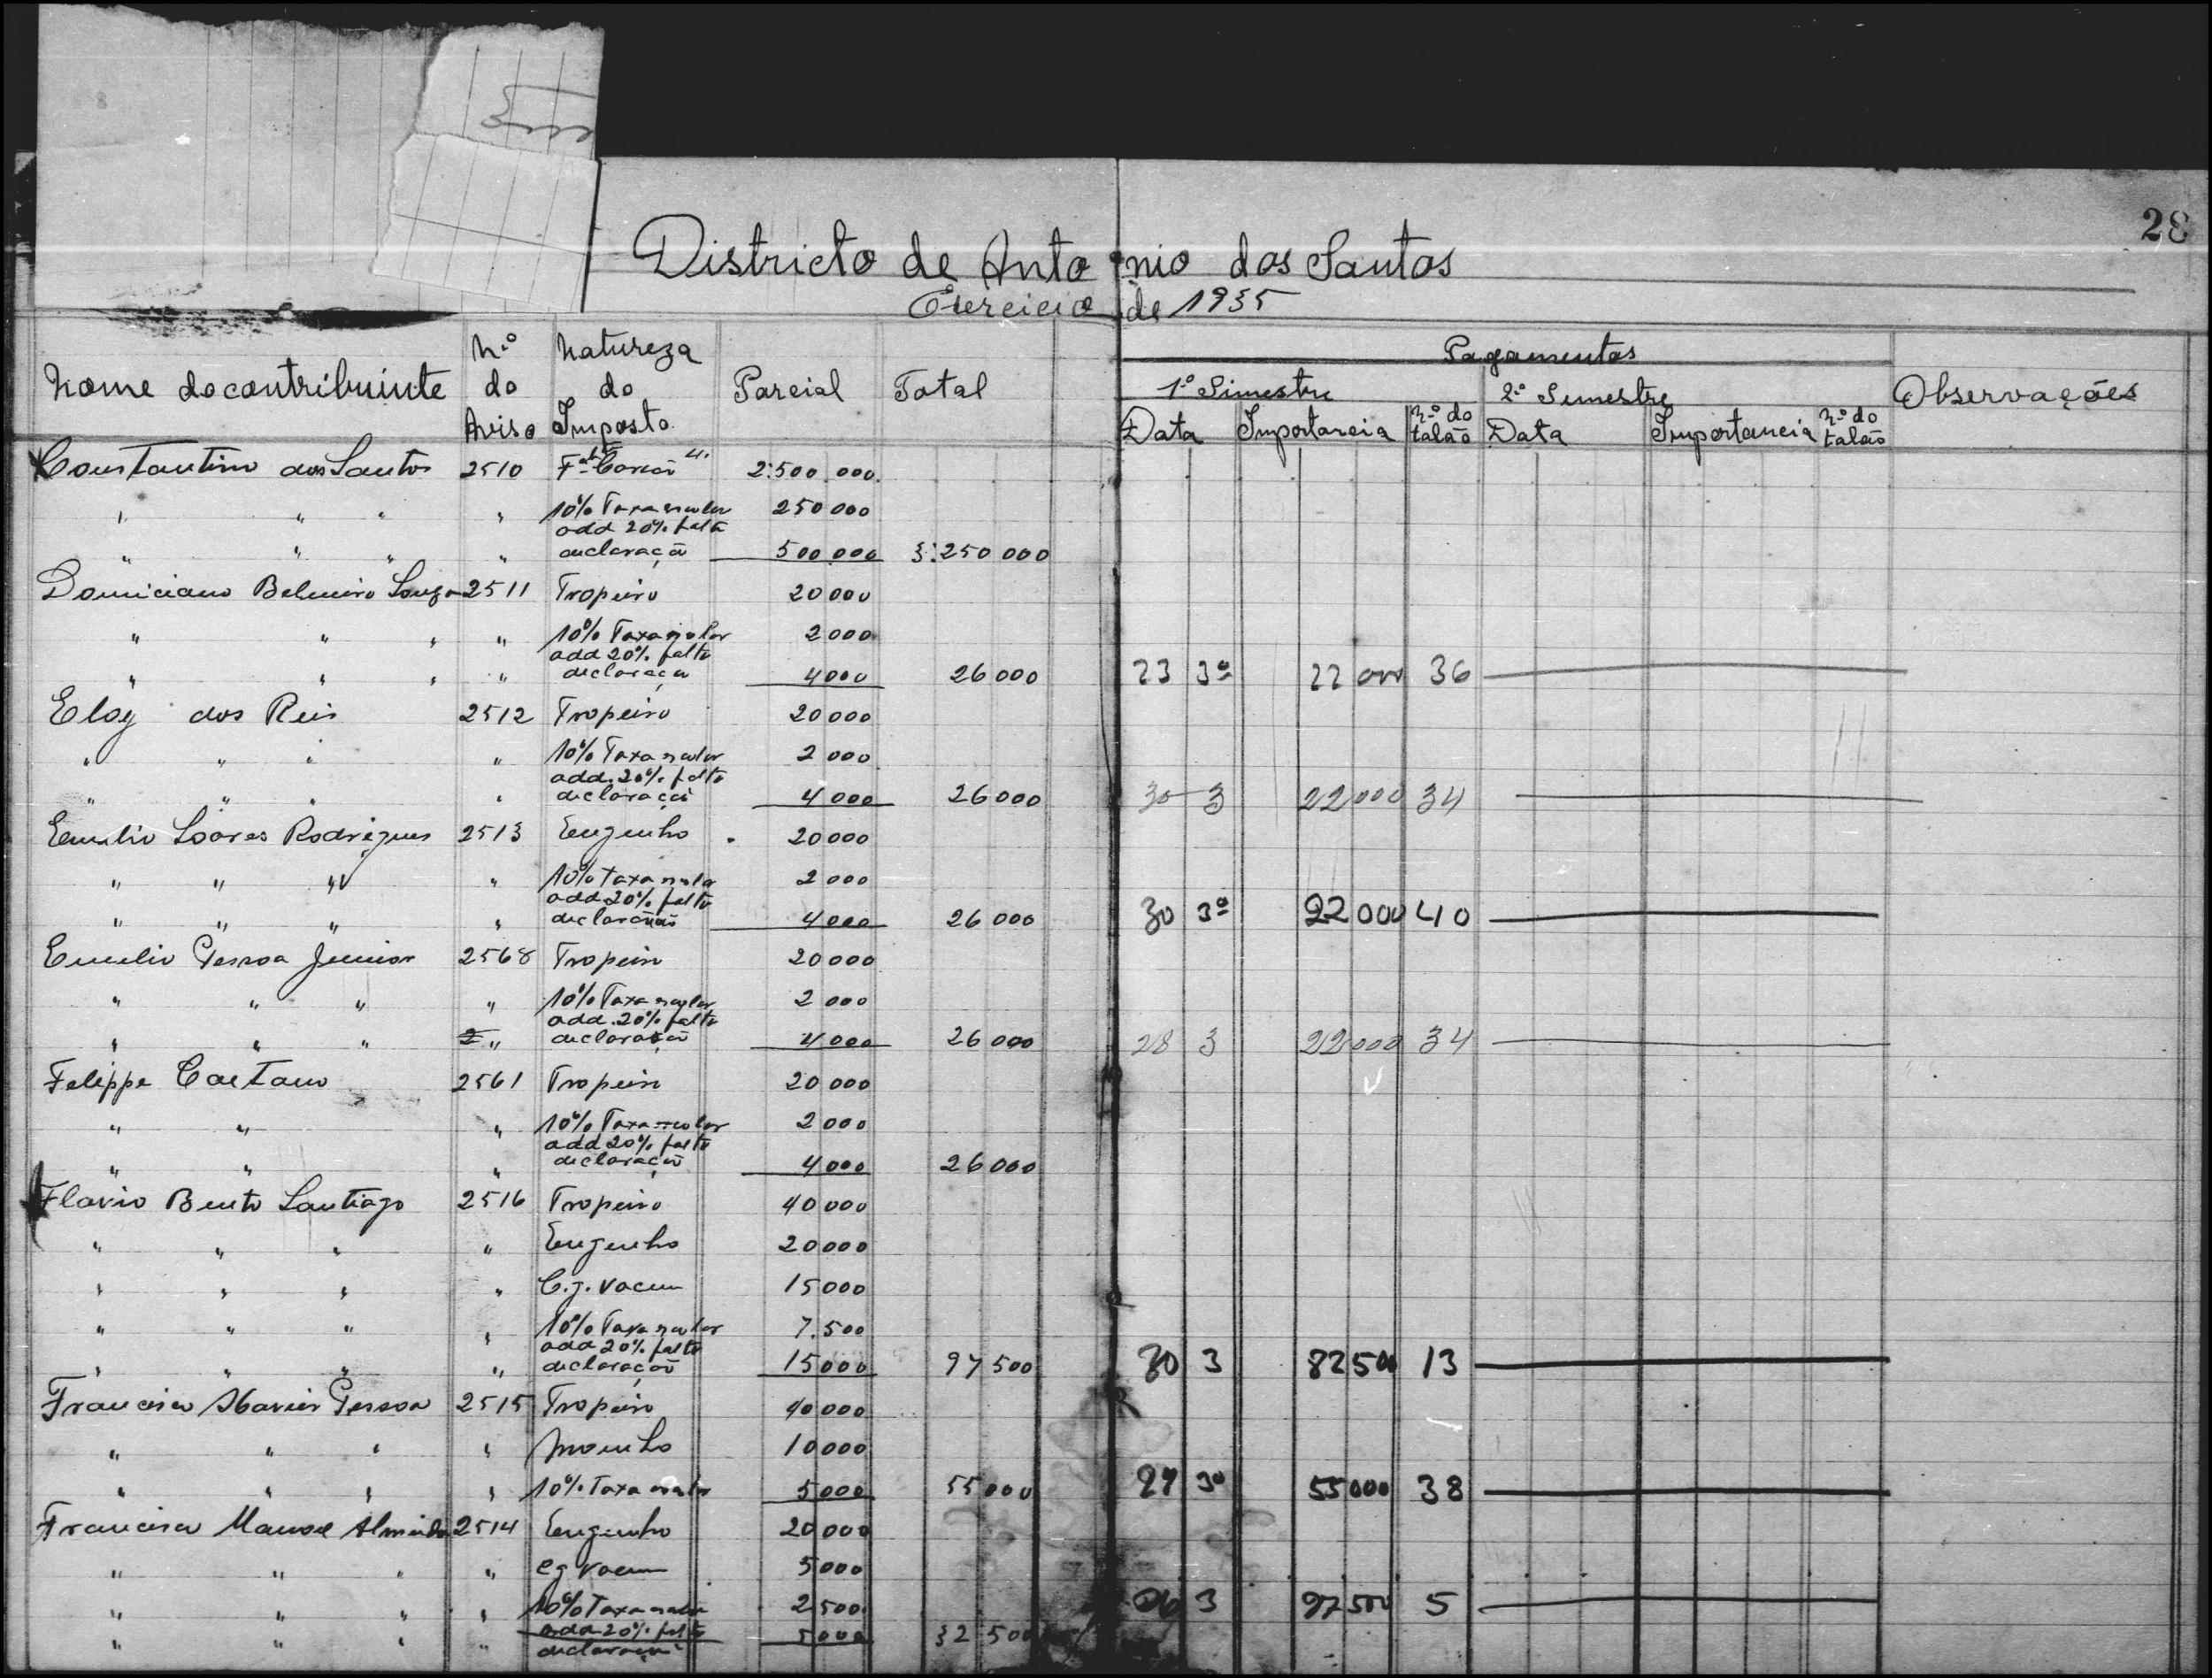 28
Districto de Antonio dos Santos
Exercicio de 1935
Nome do contribuinte Nº do Aviso Natureza do Imposto Parcial Total Pagamentos Observações
1º Simestre 2º Semestre
Data Importancia Nº do talão Data Importancia Nº do talão
Constantino dos Santos 2510 2:500 000
" " " " 10% Taxa escolar 250 000
" " " " add 20% falta declaração 500 000 3:250 000
Domiciano Belmiro Souza 2511 Tropeiro 20 000
" " " " 10% Taxa escolar 2 000
" " " " add 20% falta declaração 4 000 26 000 23 3º 22 000 36
Eloy dos Reis 2512 Tropeiro 20 000
" " " " 10% Taxa escolar 2 000
" " " " add. 20% falta declaração 4 000 26 000 30 3 22 000 34
Emilio Soares Rodrigues 2513 Engenho 20 000
" " " " 10% taxa escolar 2 000
" " " " add 20% falta declaração 4 000 26 000 30 3º 22 000 40
Emilio Pessoa Junior 2568 Tropeiro 20 000
" " " " 10% Taxa escolar 2 000
" " " " add. 20% falta declaração 4 000 26 000 28 3 22 000 34
Felippe Caetano 2561 Tropeiro 20 000
" " " 10% Taxa escolar 2 000
" " " add 20% falta declaração 4 000 26 000
Flavio Bento Santiago 2516 Tropeiro 40 000
" " " " Engenho 20 000
" " " " C.g. vacum 15 000
" " " " 10% Taxa escolar 7.500
" " " " add 20% falta declaração 15 000 97 500 30 3 82 500 13
Francisco Xavier Pessoa 2515 Tropeiro 40 000
" " " " Moinho 10 000
" " " " 10% Taxa escolar 5 000 55 000 27 3º 55 000 38
Francisco Manoel Almeida 2514 Engenho 20 000
" " " " C g vacum 5 000
" " " " 10% Taxa escolar 2 500 26 3 27 500 5
" " " " add 20% falta declaração 5 000 32 500